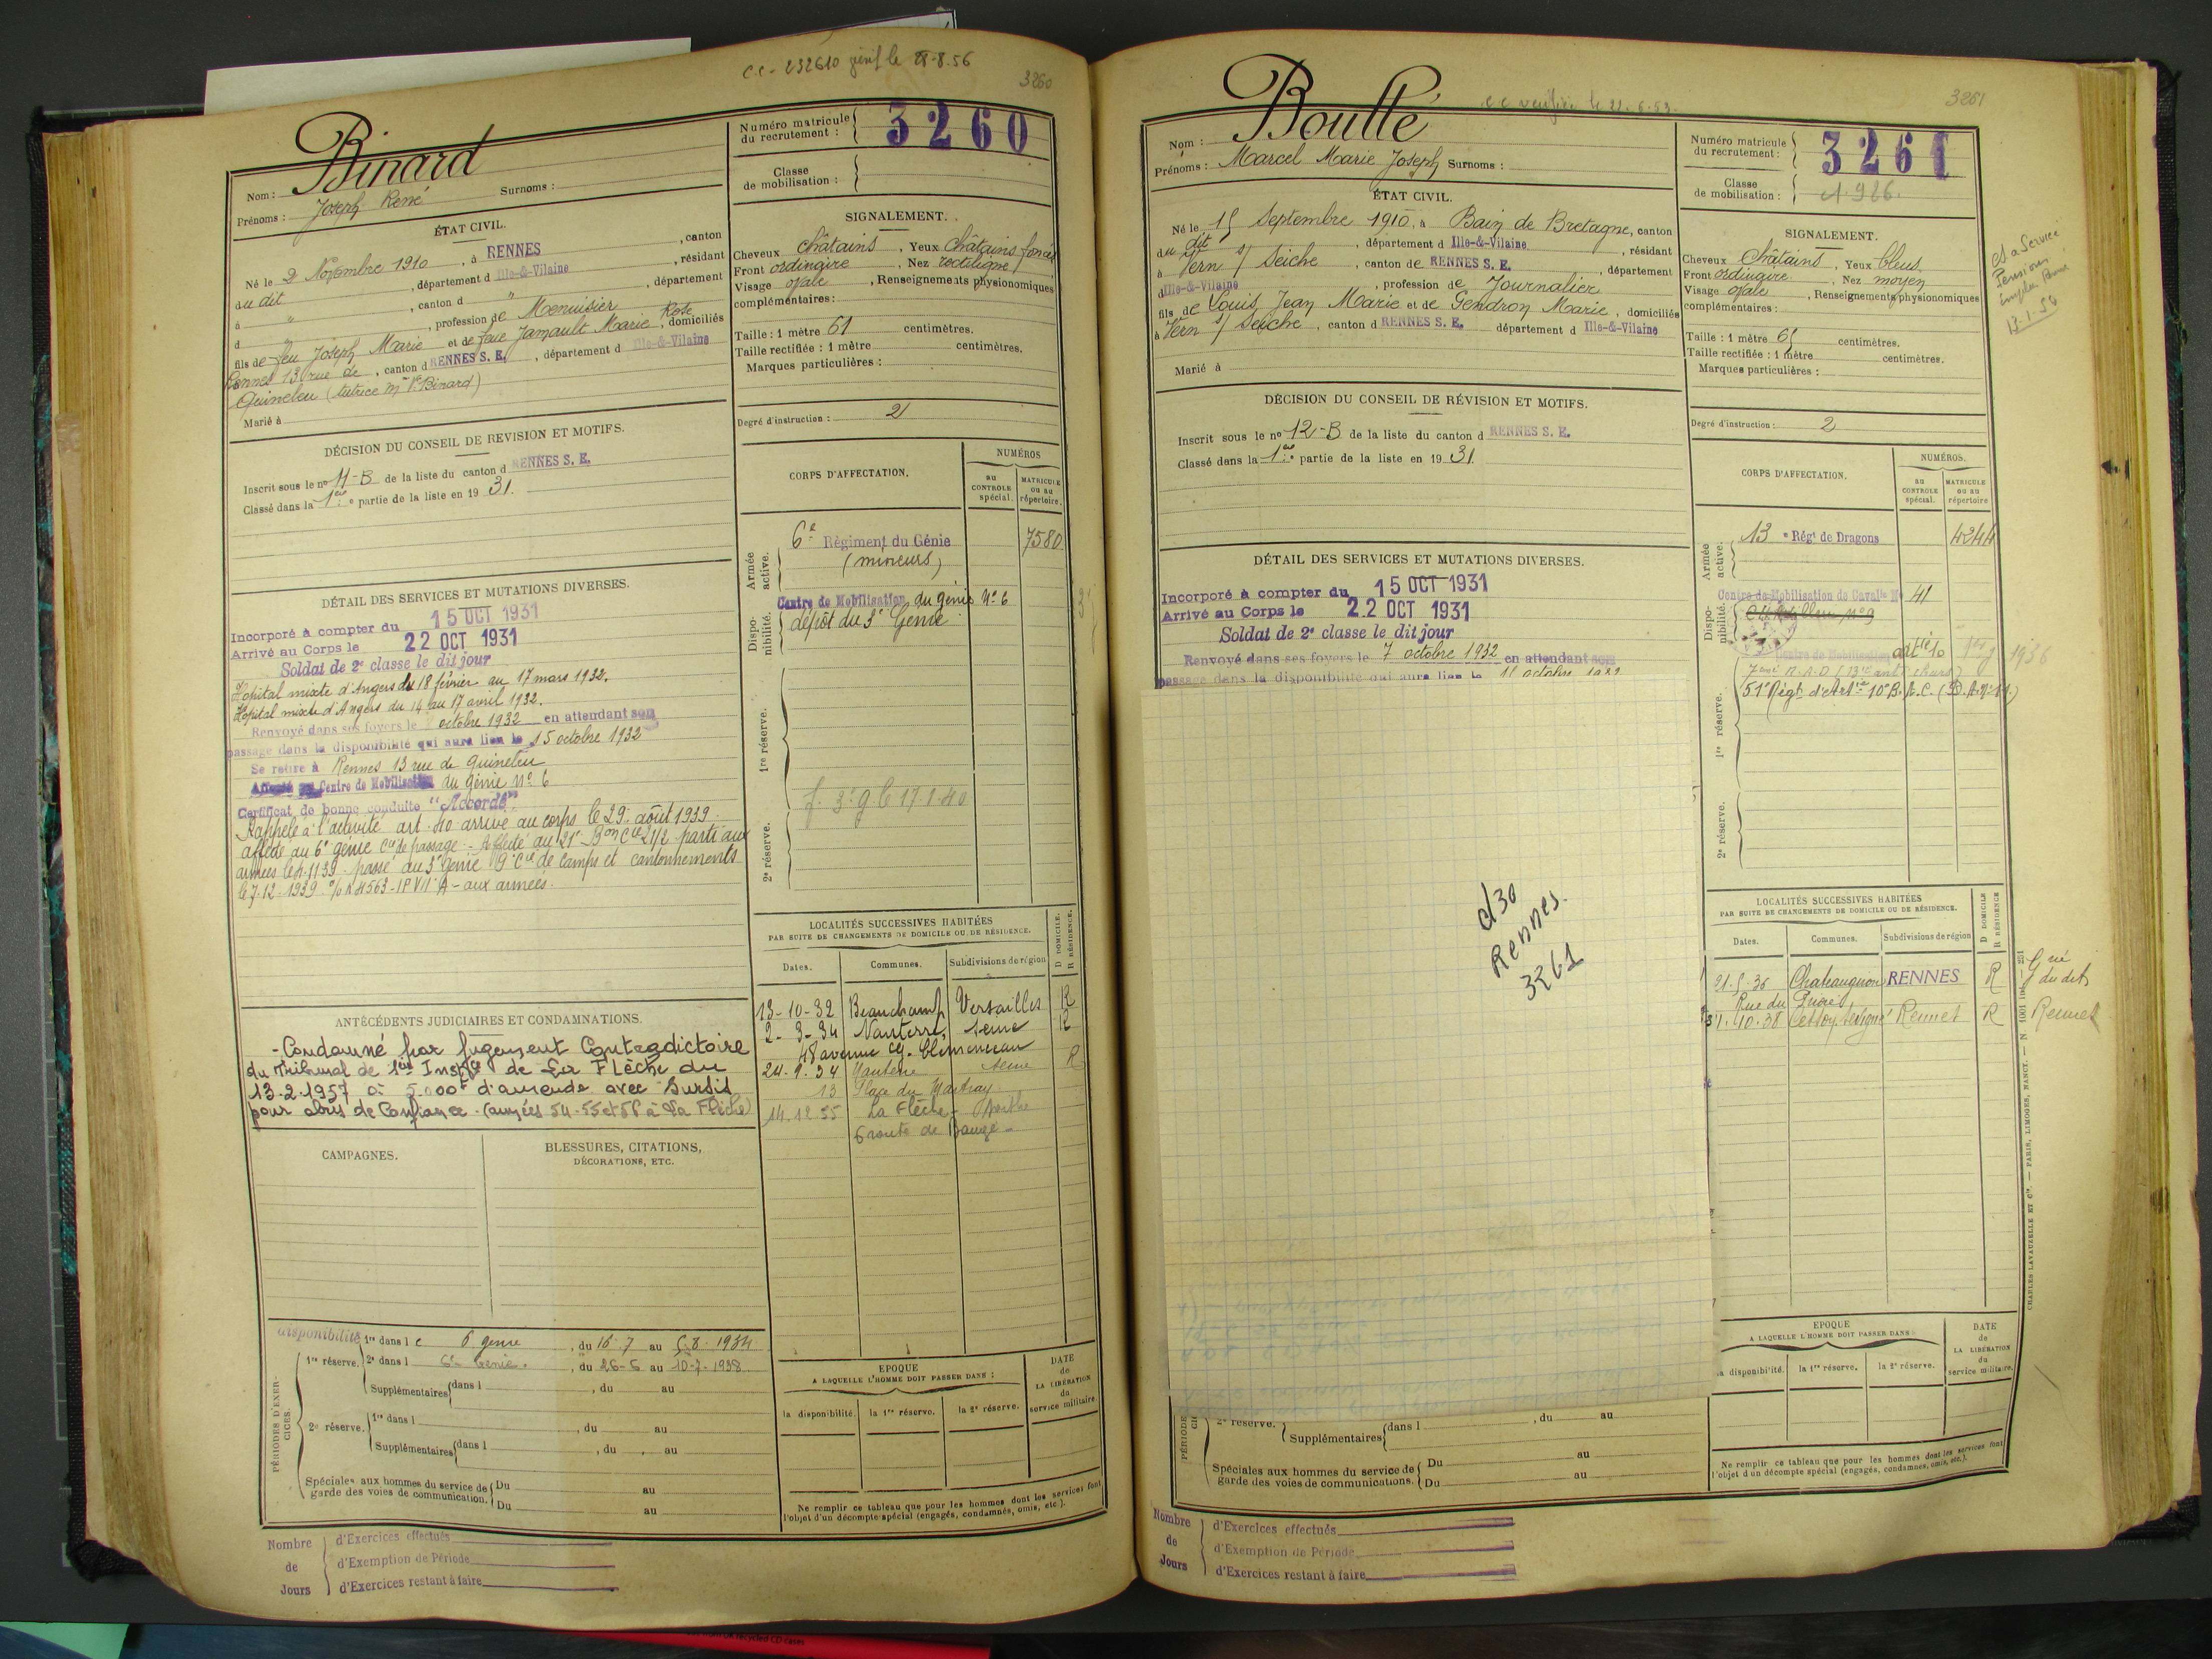 C.C - 232610 vérif le 28-8.56
3260
Nom : Binard
Prénoms : Joseph René Surnoms :
Numéro matricule du recrutement : 3260
Classe de mobilisation :
ÉTAT CIVIL.
Né le 2 Novembre 1910, à RENNES, canton
du dit, département d Ille-&-Vilaine, résidant
à ", canton d ", département
d ", profession de Menuisier
fils de feu Joseph Marie et de feue Jamault Marie Rose, domiciliés
Rennes 13 rue de, canton d RENNES S. E., département d Ille-&-Vilaine
Quineleu (tutrice Mme Ve Binard)
Marié à
SIGNALEMENT.
Cheveux châtains, Yeux châtains foncés
Front ordinaire, Nez rectiligne
Visage ovale, Renseignements physionomiques
complémentaires :
Taille : 1 mètre 61 centimètres.
Taille rectifiée : 1 mètre centimètres.
Marques particulières :
Degré d'instruction : 2
DÉCISION DU CONSEIL DE REVISION ET MOTIFS.
Inscrit sous le no 11-B de la liste du canton d RENNES S. E.
Classé dans la 1ère partie de la liste en 19 31.
DÉTAIL DES SERVICES ET MUTATIONS DIVERSES.
Incorporé à compter du 15 OCT 1931
Arrivé au Corps le 22 OCT 1931
Soldat de 2e classe le dit jour
Hôpital mixte d'Angers du 18 février au 17 mars 1932.
Hôpital mixte d'Angers du 14 au 17 avril 1932.
Renvoyé dans ses foyers le octobre 1932 en attendant son
passage dans la disponibilité qui aura lieu le 15 octobre 1932
Se retire à Rennes 13 rue de Quineleu
Affecté au Centre de Mobilisation du génie No 6
Certificat de bonne conduite "Accordé"
Rappelé à l'activité art. 40 arrivé au corps le 29 août 1939
affecté au 6e génie Cie de passage - Affecté au 21e Bon Cie 21/2 parti aux
armées le 4.11 39 passé au 3e génie 9e Cie de camps et cantonnements
le 7-12-1939 - aux armées.
CORPS D'AFFECTATION.
NUMÉROS
au CONTROLE spécial.
MATRICULE ou au répertoire.
Armée active.
6e Régiment du Génie 7580
(mineurs)
Disponibilité.
Centre de Mobilisation du génie No 6
dépôt du 3e Génie
1re réserve.
f. 3e g le 17.1.40
2e réserve.
LOCALITÉS SUCCESSIVES HABITÉES
PAR SUITE DE CHANGEMENTS DE DOMICILE OU DE RÉSIDENCE.
D DOMICILE.
R RÉSIDENCE.
Dates. Communes. Subdivisions de région
13-10-32 Beauchamp Versailles R
2-3-34 Nanterre, Seine R
48 avenue G. Clemenceau
24-9-34 Nanterre Seine R
13 Place du Martray
14.12 55 La Flèche - Sarthe
6 route de Baugé -
ANTÉCÉDENTS JUDICIAIRES ET CONDAMNATIONS.
- Condamné par jugement Contradictoire
du Tribunal de 1ère Instce de La Flèche du
13.2.1957 à 5.000f d'amende avec Sursis
pour abus de Confiance. (années 54-55 et 56 à La Flèche)
CAMPAGNES.
BLESSURES, CITATIONS,
DÉCORATIONS, ETC.
PÉRIODES D'EXERCICES.
disponibilité 1re dans l e 6 génie, du 16-7 au 5.8.1934
1re réserve. 2e dans l 6e Génie., du 26-6 au 10-7-1938
Supplémentaires dans l , du au
2e réserve. 1re dans l , du au
Supplémentaires dans l , du au
Spéciales aux hommes du service de garde des voies de communication. Du au
Du au
EPOQUE
A LAQUELLE L'HOMME DOIT PASSER DANS :
la disponibilité. la 1re réserve. la 2e réserve.
DATE de LA LIBÉRATION du service militaire.
Ne remplir ce tableau que pour les hommes dont les services font
l'objet d'un décompte spécial (engagés, condamnés, omis, etc.).
Nombre de Jours
d'Exercices effectués
d'Exemption de Période
d'Exercices restant à faire
C.C verifié le 22.6.53.
3261
Nom : Boullé
Prénoms : Marcel Marie Joseph Surnoms :
Numéro matricule du recrutement : 3261
Classe de mobilisation : 1926.
ÉTAT CIVIL.
Né le 15 Septembre 1910, à Bain de Bretagne, canton
du dit, département d Ille-&-Vilaine, résidant
à Vern s/ Seiche, canton de RENNES S. E., département
d Ille-&-Vilaine, profession de Journalier
fils de Louis Jean Marie et de Gendron Marie, domiciliés
à Vern s/ Seiche, canton d RENNES S. E. département d Ille-&-Vilaine
Marié à
SIGNALEMENT.
Cheveux châtains, Yeux bleus
Front ordinaire, Nez moyen
Visage ovale, Renseignements physionomiques
complémentaires :
Taille : 1 mètre 61 centimètres.
Taille rectifiée : 1 mètre centimètres.
Marques particulières :
Degré d'instruction : 2
Service
Pension
13-1-50
DÉCISION DU CONSEIL DE RÉVISION ET MOTIFS.
Inscrit sous le no 12-B de la liste du canton d RENNES S. E.
Classé dans la 1ère partie de la liste en 19 31.
DÉTAIL DES SERVICES ET MUTATIONS DIVERSES.
Incorporé à compter du 15 OCT 1931
Arrivé au Corps le 22 OCT 1931
Soldat de 2e classe le dit jour
Renvoyé dans ses foyers le 7 octobre 1932 en attendant son
passage dans la disponibilité qui aura lieu le 15 octobre 1932
cl 30
Rennes.
3261
CORPS D'AFFECTATION.
NUMÉROS.
au CONTROLE spécial.
MATRICULE ou au répertoire
Armée active.
13e Régt de Dragons 4244
Disponibilité.
Centre de Mobilisation de Cavalie No 41
Centre de Mobilisation artie 10 1936
1re réserve.
51e Régt d'Artie 10e B.A.C.
2e réserve.
LOCALITÉS SUCCESSIVES HABITÉES
PAR SUITE DE CHANGEMENTS DE DOMICILE OU DE RÉSIDENCE.
D DOMICILE
R RÉSIDENCE
Dates. Communes. Subdivisions de région
21-5-36 Chateaugiron RENNES R
Rue du Prieuré
31.10.38 Cesson-Sévigné Rennes R Rennes
EPOQUE
A LAQUELLE L'HOMME DOIT PASSER DANS
la disponibilité. la 1re réserve. la 2e réserve.
DATE de LA LIBÉRATION du service militaire.
2e réserve.
Supplémentaires dans l , du au
Spéciales aux hommes du service de garde des voies de communications. Du au
Du au
Ne remplir ce tableau que pour les hommes dont les services font
l'objet d'un décompte spécial (engagés, condamnés, omis, etc.).
CHARLES LAVAUZELLE ET Cie. — PARIS, LIMOGES, NANCY. — N 1001
Nombre de Jours
d'Exercices effectués
d'Exemption de Période
d'Exercices restant à faire
recycled CD cases